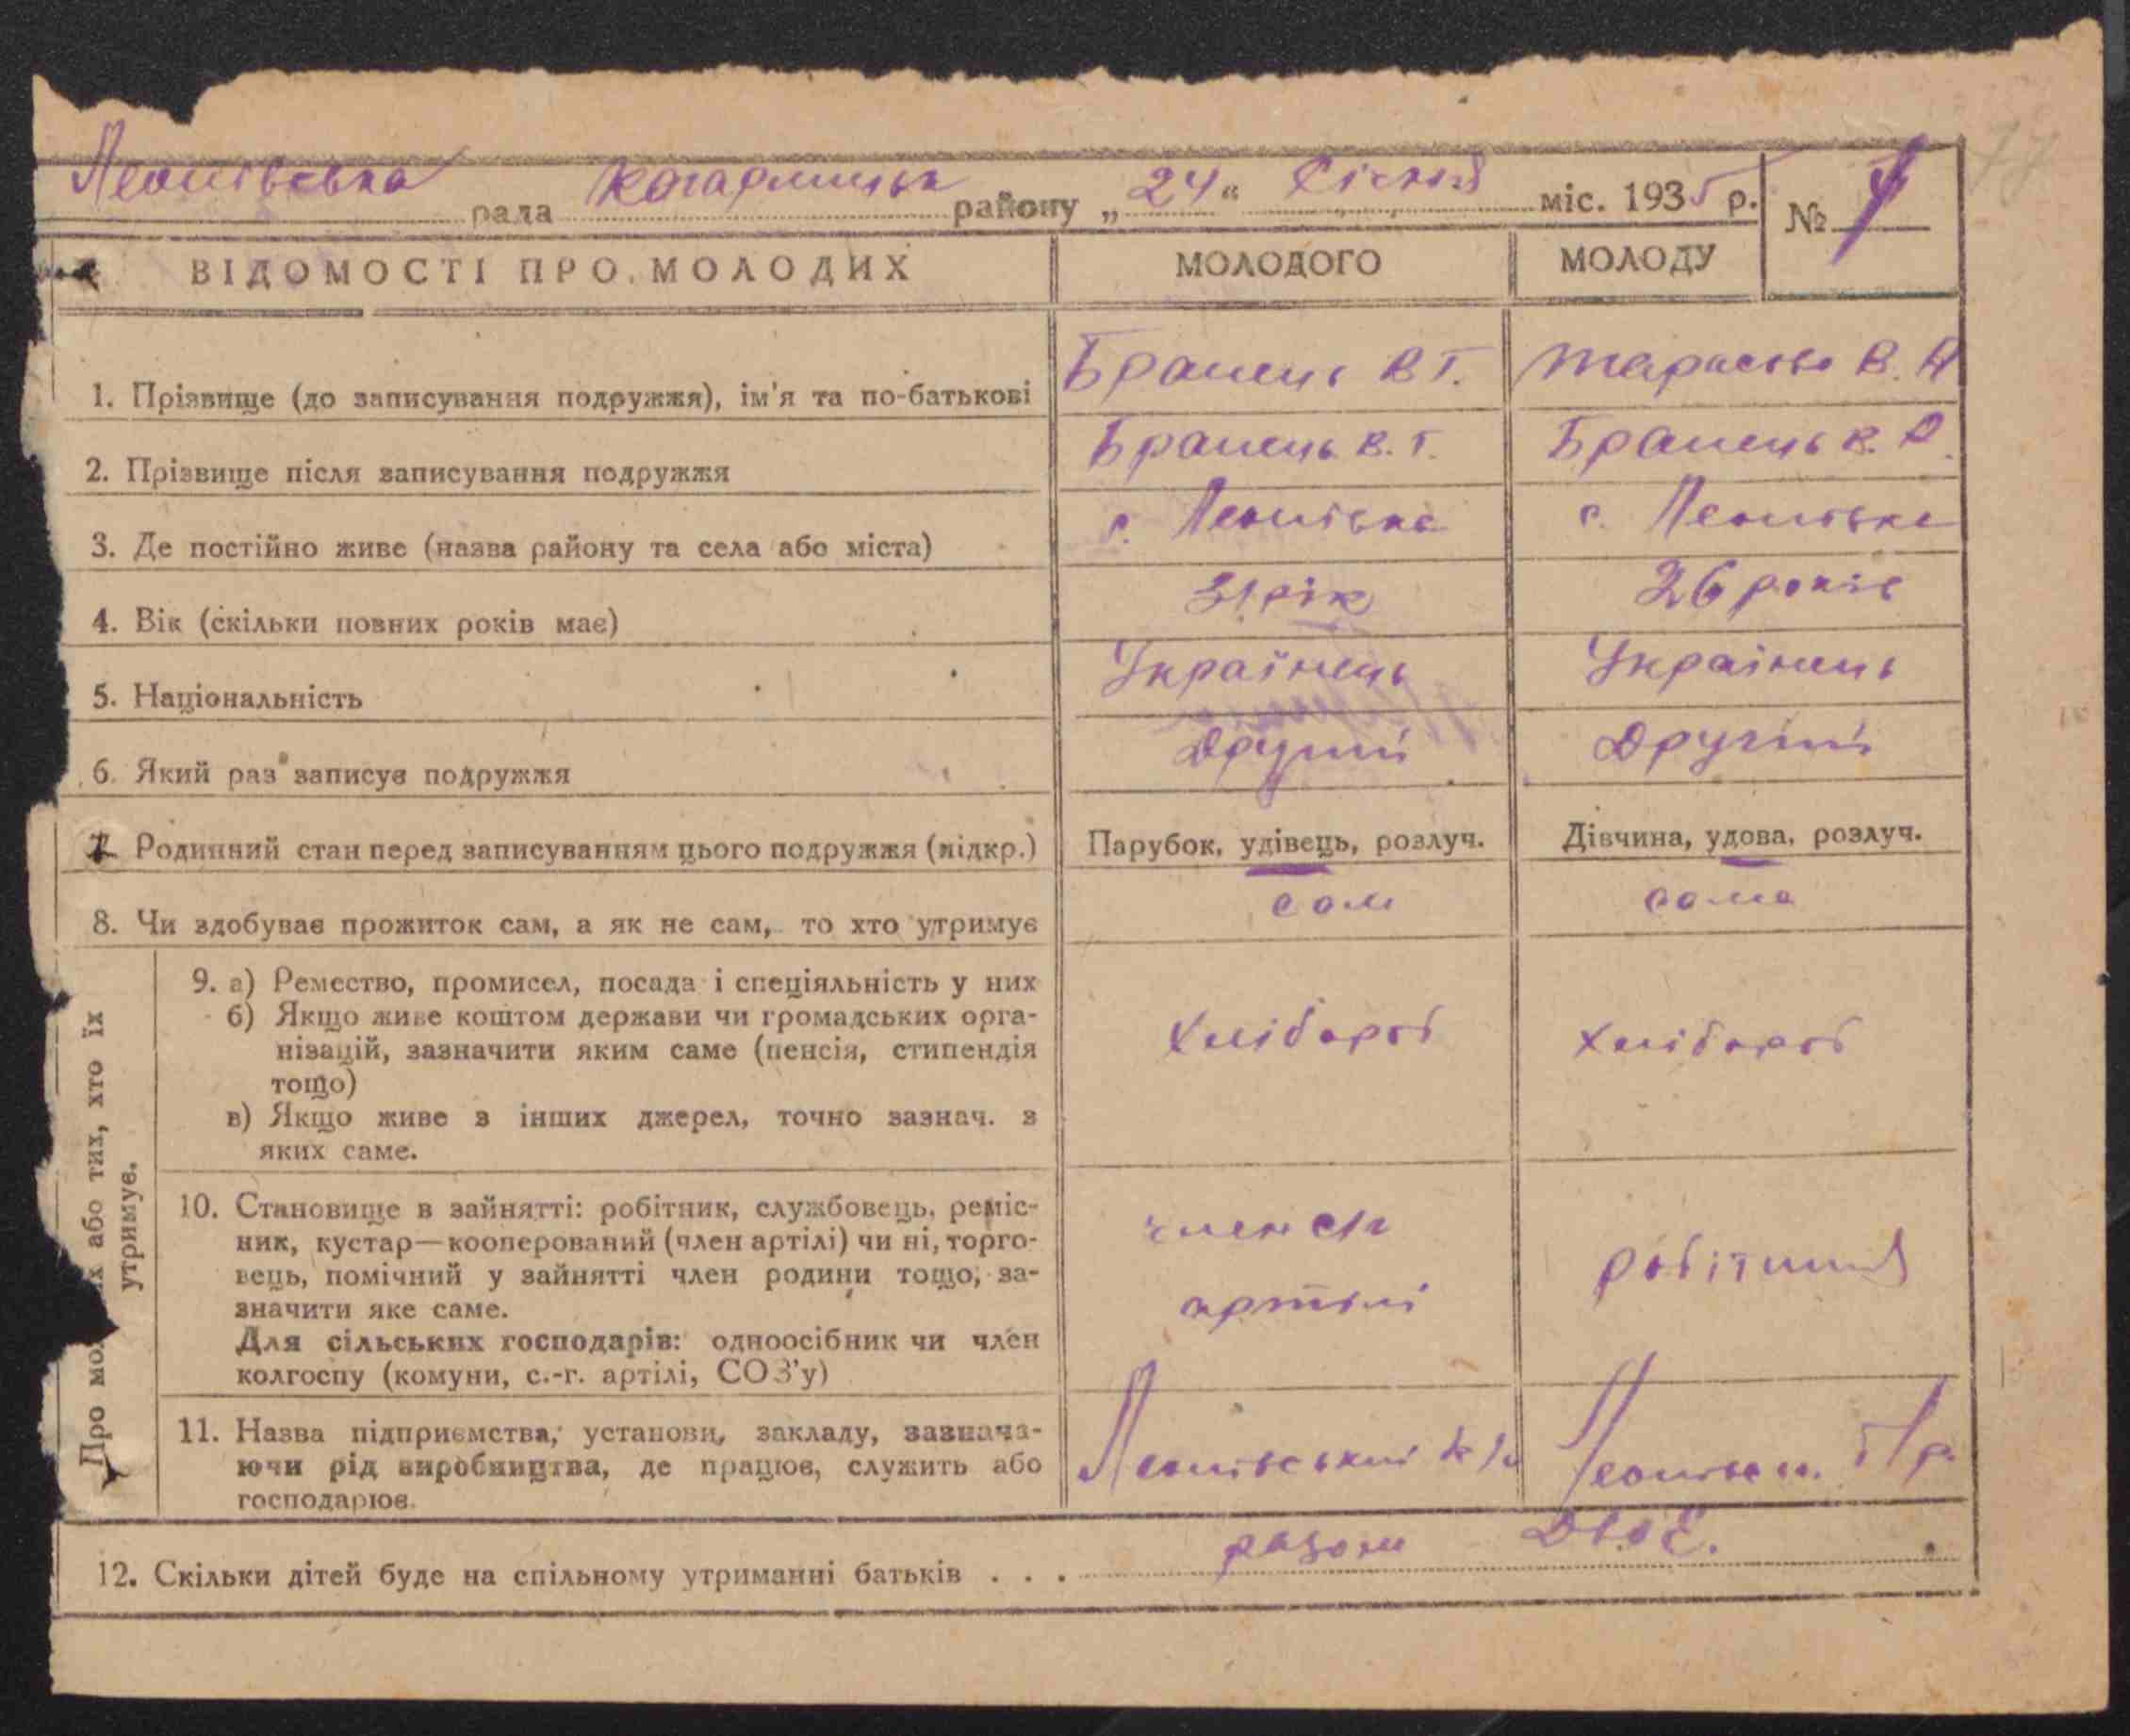 Леонівська рада Кагарлицьк району „24“ Січня міс. 1935 р. №
77
ВІДОМОСТІ ПРО МОЛОДИХ МОЛОДОГО МОЛОДУ
1. Прізвище (до записування подружжя), ім'я та по-батькові Бранець В Г. Тарасова В.
2. Прізвище після записування подружжя Бранець В. Г. Бранець В.
3. Де постійно живе (назва району та села або міста) с. Леонівка с. Леонівка
4. Вік (скільки повних років має) 31 рік 26 років
5. Національність Українець Українець
6. Який раз записує подружжя Другий Другий
7. Родинний стан перед записуванням цього подружжя (підкр.) Парубок, удівець, розлуч. Дівчина, удова, розлуч.
8. Чи здобуває прожиток сам, а як не сам, то хто утримує сам сама
Про мол х або тих, хто їх
утримує.
9. а) Ремество, промисел, посада і спеціяльність у них
б) Якщо живе коштом держави чи громадських орга-
нізацій, зазначити яким саме (пенсія, стипендія
тощо)
в) Якщо живе з інших джерел, точно зазнач. з
яких саме.
Хлібороб Хлібороб
10. Становище в зайнятті: робітник, службовець, реміс-
ник, кустар—кооперований (член артілі) чи ні, торго-
вець, помічний у зайнятті член родини тощо, за-
значити яке саме.
Для сільських господарів: одноосібник чи член
колгоспу (комуни, с.-г. артілі, СОЗ'у)
член с/г
артілі
робітниця
11. Назва підприємства, установи, закладу, зазнача-
ючи рід виробництва, де працює, служить або
господарює.
Леонівський к/г
12. Скільки дітей буде на спільному утриманні батьків . . . разом двоє.